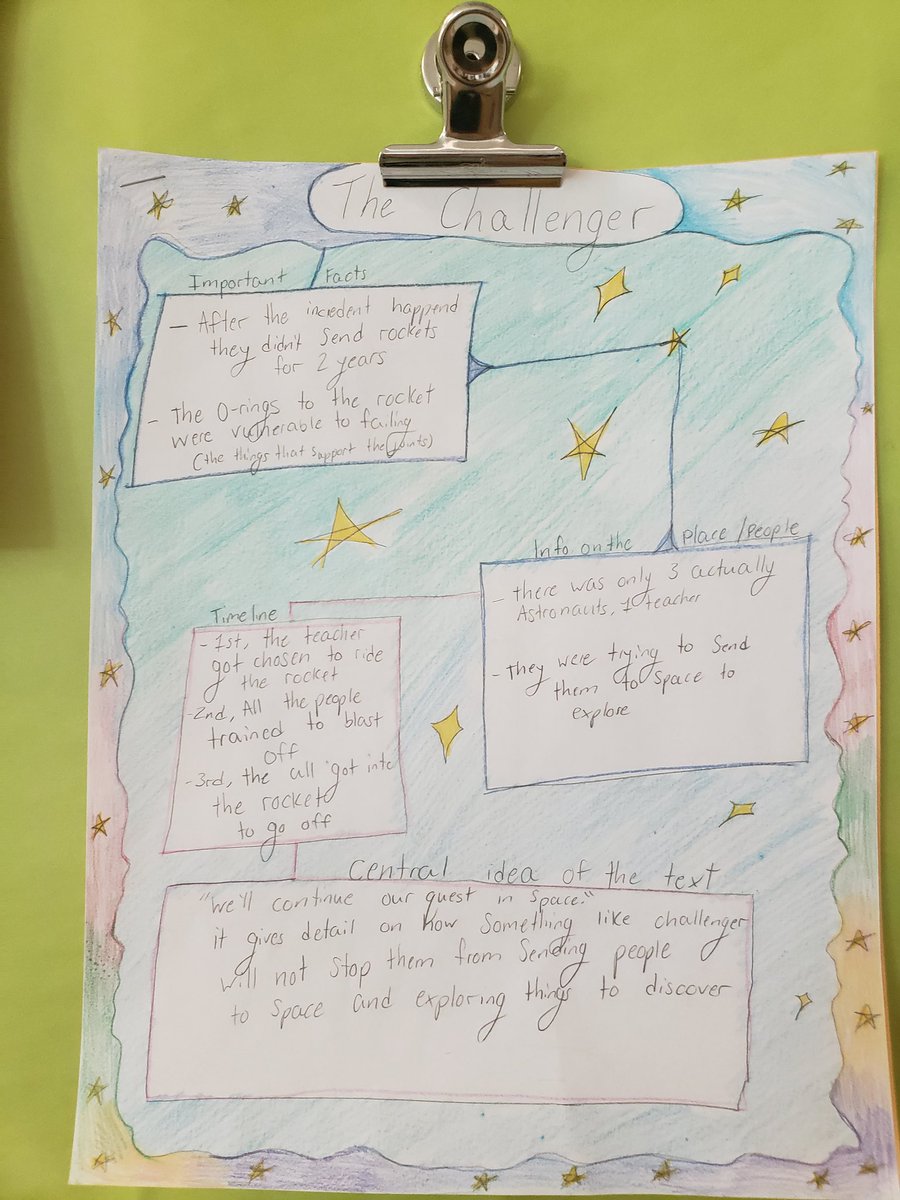 The Challenger
Important Facts
- After the incedent happend
they didn't send rockets
for 2 years
- The O-rings to the rocket
were vulnerable to failing
(the things that support the joints)
Info on the Place/People
- there was only 3 actually
Astronauts, 1 teacher
- They were trying to send
them to space to
explore
Timeline
- 1st, the teacher
got chosen to ride
the rocket
- 2nd, All the people
trained to blast
off
- 3rd, the all got into
the rocket
to go off
Central idea of the text
"We'll continue our quest in space."
it gives detail on how something like challenger
will not stop them from sending people
to space and exploring things to discover